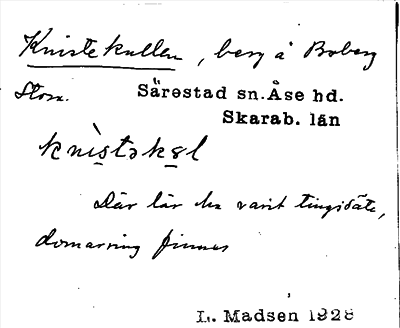 Knistekullen, berg å Boberg
Stom. Särestad sn. Åse hd.
Skarab. län
knìstəkəl
Där lär ha varit tingsäte,
domarring finnes
L. Madsen 1928